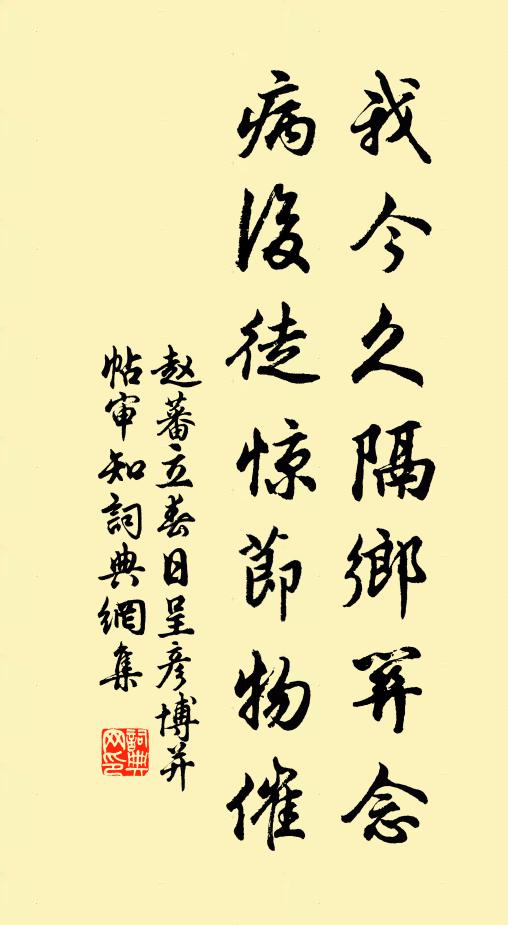 我今久隔鄉關念
病後徒惊節物催
赵蕃立春日呈彥博并
帖审知詞典網集
詞典网印